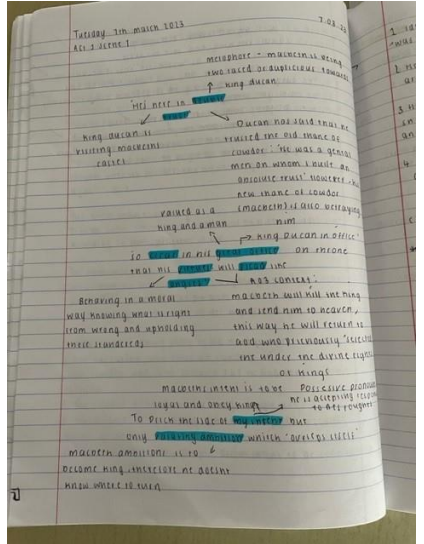 Tuesday 7th march 2023
7.03.23
Act 1 Scene 7
metaphore - macbeth is being
two faced or duplicious towards
king ducan
'Hes here in double
trust'
king ducan is
visiting macbeths
castel
Ducan has said that he
trusted the old thane of
cowdor: 'He was a gentel
men on whom I built an
absolute trust' However the
new thane of cowdor
(macbeth) is also betraying
him
valued as a
king and a man
King Ducan in office
on throne
so clear in his great office
that his virtues will plead like
angels
Behaving in a moral
way knowing what is right
from wrong and upholding
these standereds
A03 context:
macbeth will kill the king
and send him to heaven,
this way he will return to
god who previously 'selected'
the under the divine rights
of kings
macbeths intent is to be
loyal and only king
Possesive pronoun
he is accepting
To prick the side of my intent but
only vaulting ambition which 'overleps itself'
macbeth ambitions is to
become king, therefore he doesnt
know where to turn